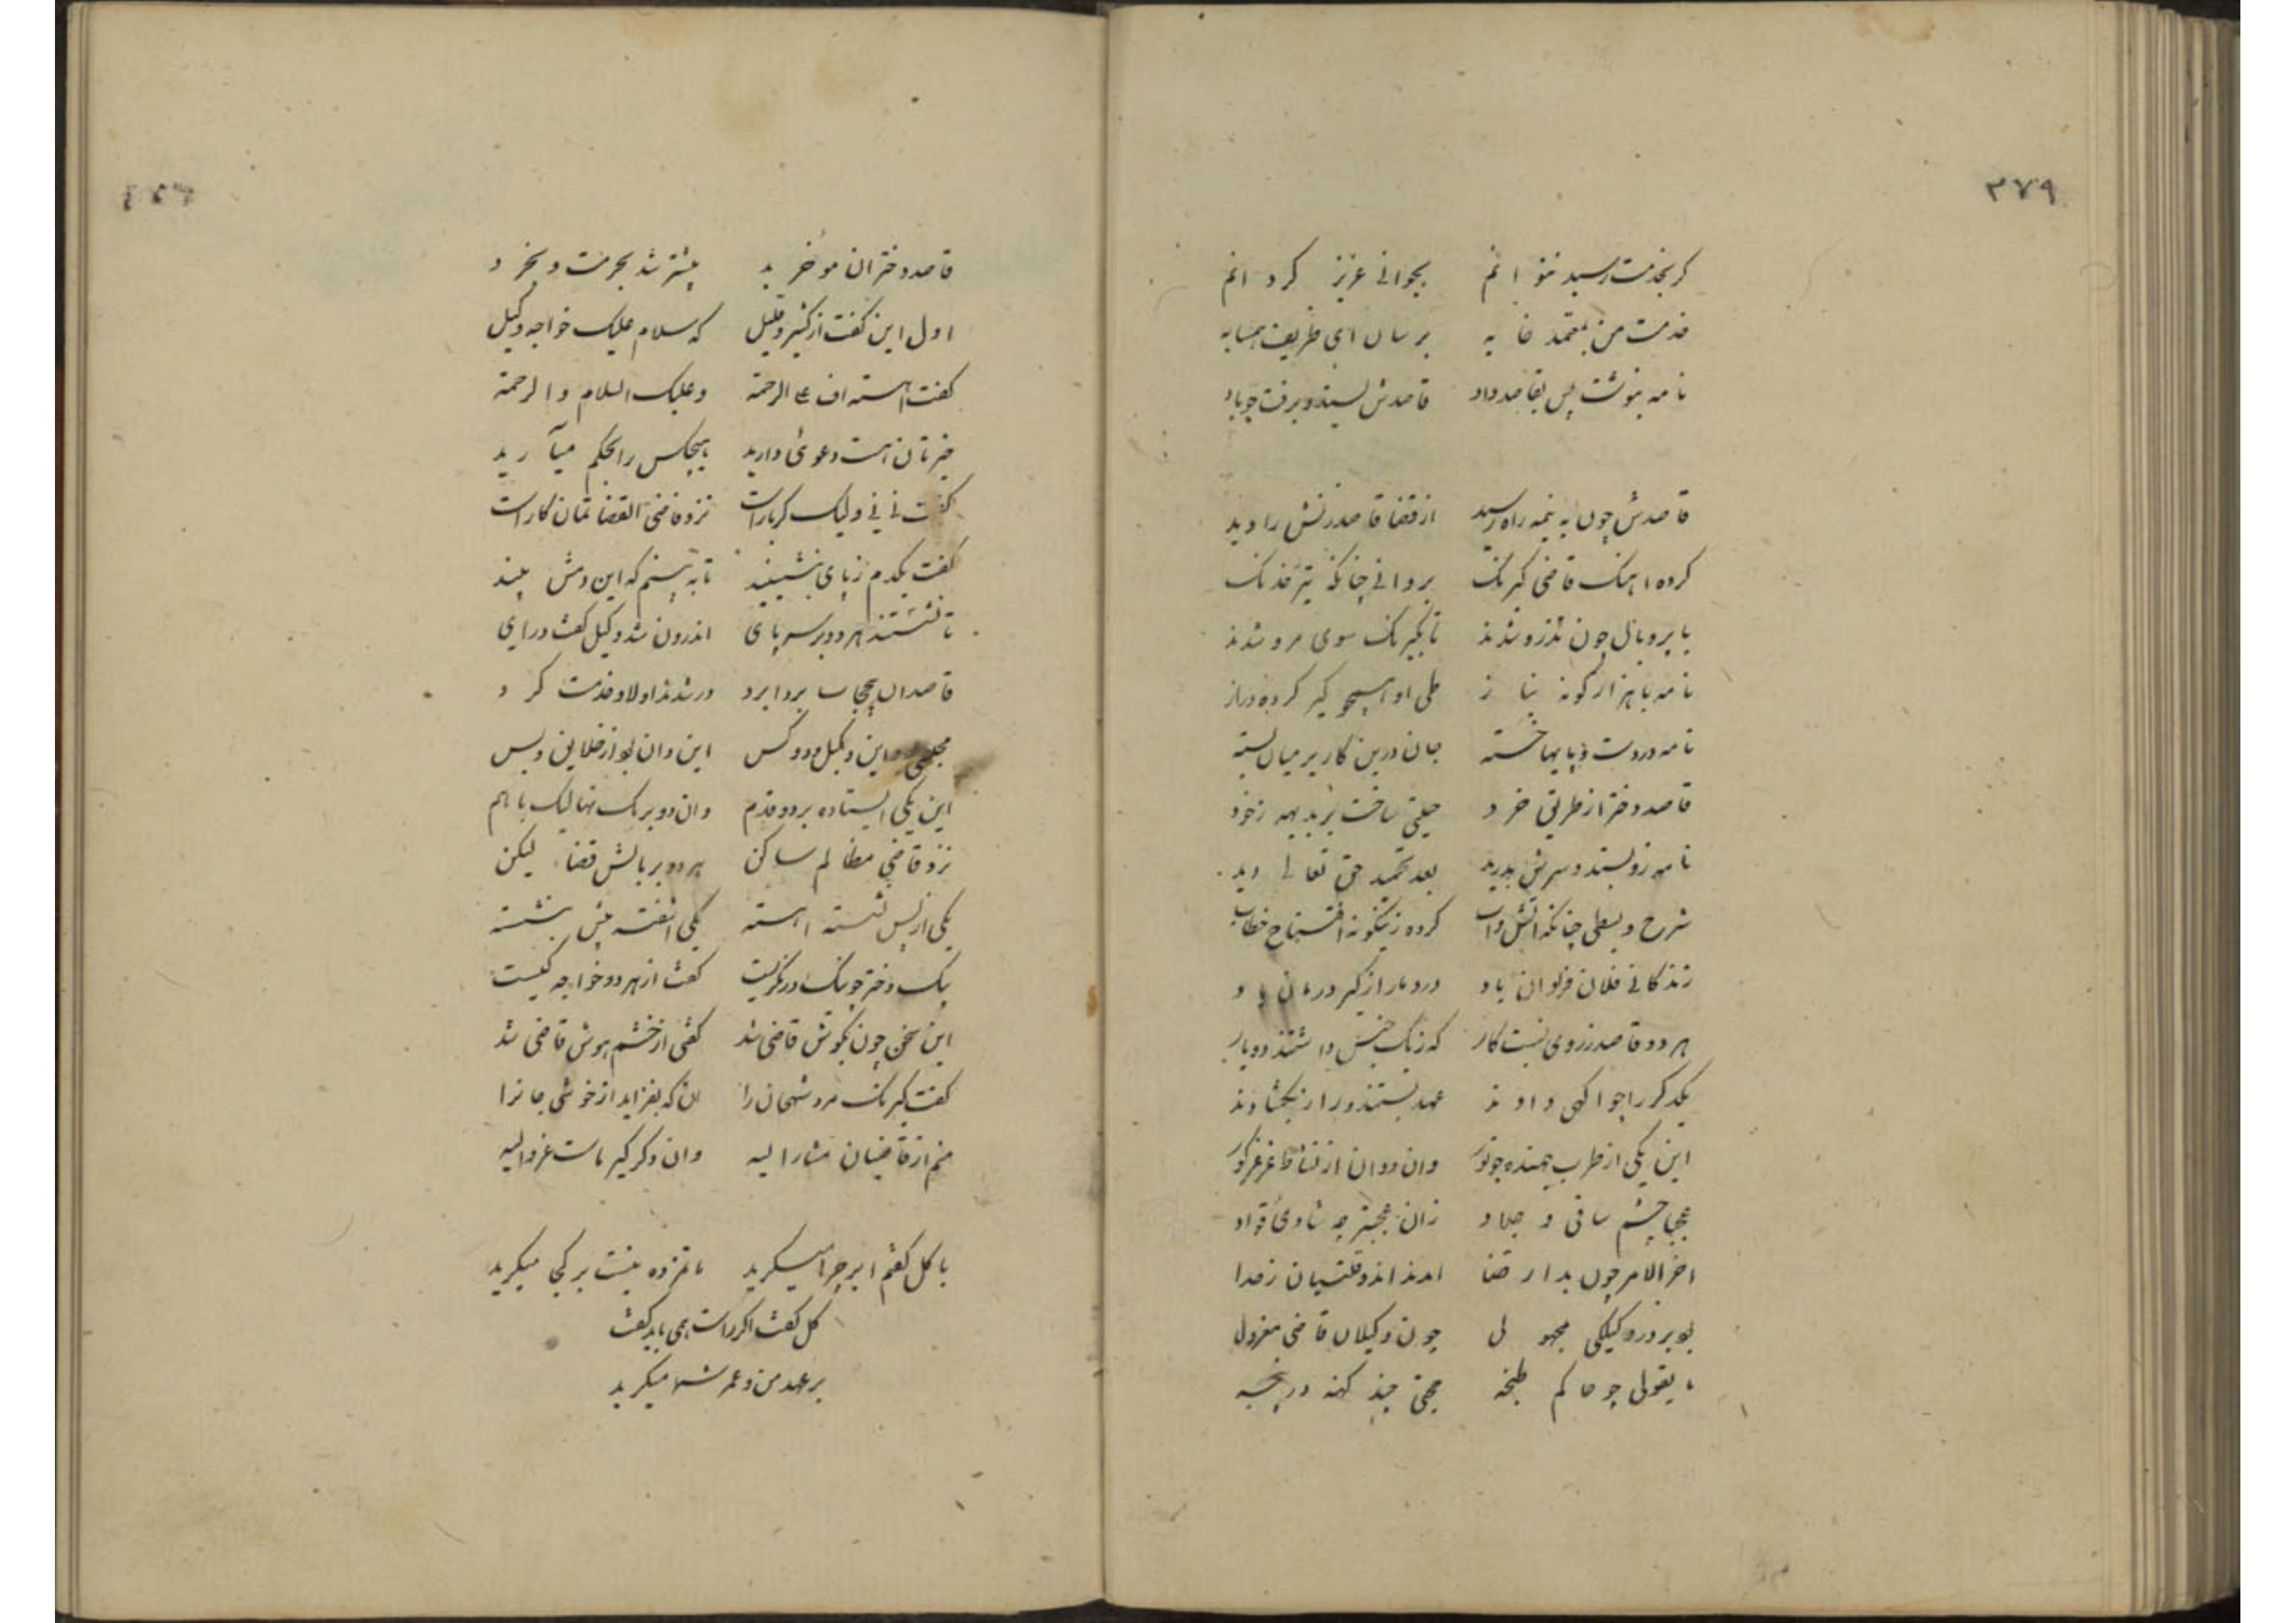 ۳۷۹
کر بخدمت رسید نتوانم بجوانی عزیز کرد انم
خدمت من بمعتمد خایه برسان ای ظریف همسایه
نامه بنوشت پس بقاصد داد قاصدش بستد و برفت چو باد
قاصدش چون به نیمه راه رسید از قضا قاصد زنش را دید
کرده اهنک قاضی کیرنک بروانی چنانکه تیر خدنک
با پر و بال چون تذرو شدند تا بکیرنک سوی مرو شدند
نامه با هزار کونه نیاز طی او همچو کیر کرده دراز
نامه در دست و پایها خسته جان درین کار بر میان بسته
قاصد دختر از طریق خرد حیلتی ساخت بر بدیهه زخود
نامه زو بستد و سرش بدرید بعد تحمید حق تعالی دید
شرح و بسطی چنانکه کرده زینکونه افتتاح خطاب
زندکانی فلان فراوان باد درد ما را ز کیر درمان باد
هر دو قاصد ز روی نسبت کار که ز یک جنس داشتند دو یار
یکدکر را چو اکهی دادند عهد بستند و راز بکشادند
این یکی از طرب جهنده چو وان دوان از نشاط
عجبا چشم ساقی و جلاد زان عجبتر چه شادی قواد
اخر الامر چون بدار قضا امدند اندو قلتبان ز قضا
بود بر در وکیلکی مجهول چون وکیلان قاضی معزول
با یقولی چو حاکم طبخه حجتی چند کهنه در پنجه
قاصد دختر ان موخر بد پیشتر شد بحرمت و بخرد
اول این کفت از کثیر و قلیل که سلام علیک خواجه وکیل
کفت اهسته الرحمة وعلیک السلام والرحمة
خیرتان هست دعوی دارید هیچکس را بحکم میآرید
کفت نی نی ولیک کر بارست نزد قاضی القضاتمان کارست
کفت یکدم زپای بنشینید تا به بینم که این دمش بیند
تا نشستند هر دو بر سر پای اندرون شد وکیل کفت درای
قاصدان بردابرد در شدند اولا و خدمت کرد
مجلسی این وکیل و دو کس این وان بود از خلایق و بس
این یکی ایستاده بر دو قدم وان دو بر یک نهالیک با هم
نزد قاضی مظالم ساکن هر دو بر بالش قضا لیکن
یکی از پس نشسته اهسته یکی اشفته پیش بنشسته
پیک دختر چو نیک درنکریست کفت از هر دو خواجه کیست
این سخن چون بکوش قاضی شد کفتی از خشم هوش قاضی شد
کفت کیرنک مرو شهجان را ان که بفزاید از خوشی جانرا
منم از قاضیان مشار الیه وان دکر کیر ماست عز والیه
با کل کفتم ابر چرا میکرید ماتم زده نیست بر کجا میکرید
کل کفت اکر راست همی باید کفت
بر عهد من و عمر شما میکرید